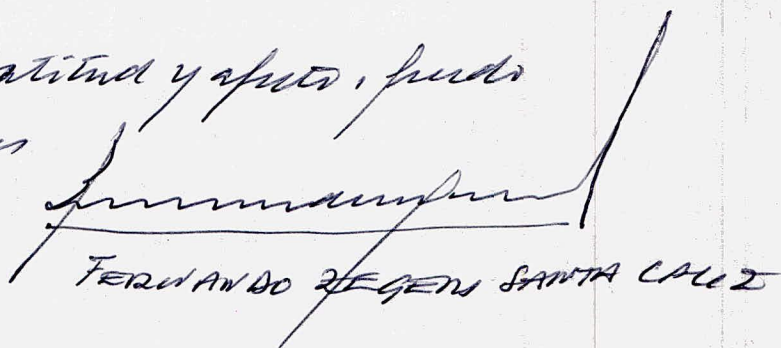 atitud y afecto, quedo
FERNANDO ZEGERS SANTA CRUZ